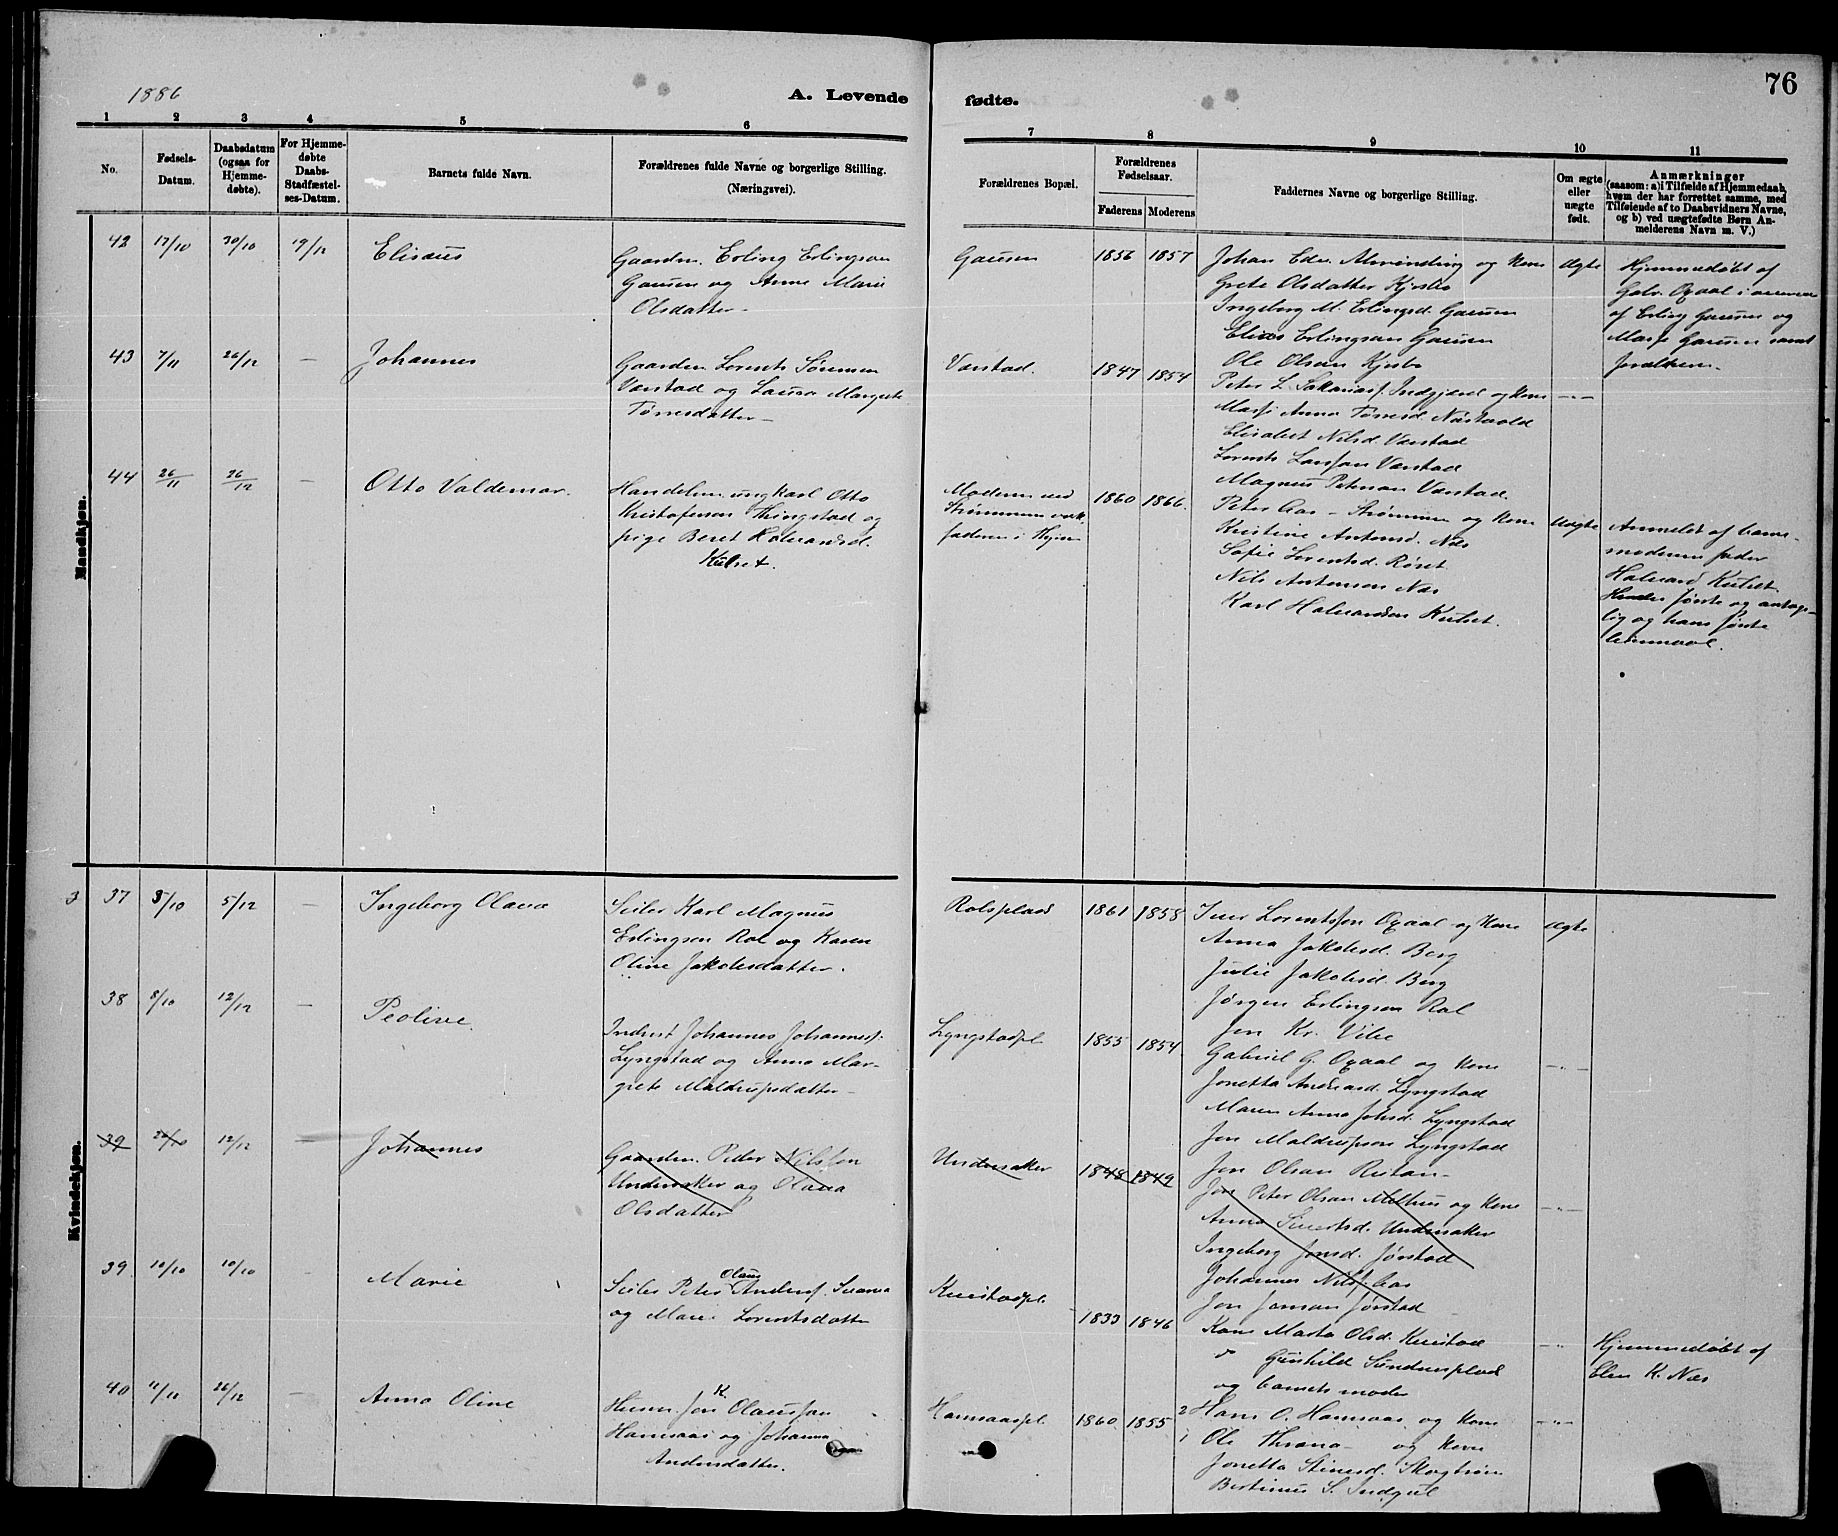 1886
A. Levende
fødte.
76
1 2 3 4 5 6
7 8 9 10 11
No.
Fødsels-
Datum.
Daabsdatum
(ogsaa for
Hjemme-
døbte).
For Hjemme-
døbte
Daabs-
Stadfæstel-
ses-Datum.
Barnets fulde Navn.
Forældrenes fulde Navne og borgerlige Stilling.
(Næringsvei).
Forældrenes Bopæl.
Forældrenes
Fødselsaar.
Faderens Moderens
Faddernes Navne og borgerlige Stilling.
Om ægte
eller
uægte
født.
Anmærkninger
(saasom: a) i Tilfælde af Hjemmedaab,
hvem der har forrettet samme, med
Tilføiende af to Daabsvidners Navne,
og b) ved uægtefødte Børn An-
melderens Navn m. V.)
Mandkjøn.
42 17/10 30/10 19/12 Elisæus
Gaardm. Erling Erlingsen
Gausen og Anne Marie
Olsdatter
Gausen 1856 1857
Johan Edv. Almvinding og Kone
Grete Olsdatter Kjesbo
Ingeborg M. Erlingsd. Gausen
Elias Erlingsen Gausen
Ole Olsen Kjesbo
Ægte
Hjemmedøbt af
Gabr. Oxaal i nærvær
af Erling Gausen og
Marje Gausen samt
Forældrene
43 7/11 26/12 — Johannes
Gaardm. Lorents Sørensen
Værstad og Laura Margrete
Tørresdatter
Værstad. 1847 1854
Peter L. Sakarias. Indgjærd og Kone
Marje Anna Tørresd. Næstvold
Elisabet Nilsd. Værstad
Lorents Larssen Værstad
Magnus Petersen Værstad
—"—
44 26/11 26/12 — Otto Valdemar.
Handelsm. ungkarl Otto
Kristofersen Thingstad og
pige Beret Halvardsd.
Kulset.
Moderen ved
Strømmen
faderen i
1860 1866.
Peter Aas — Strømmen og Kone
Kristine Antonsd. Næs
Sofie Lorentsd. Røset
Nils Antonsen Næs
Karl Halvardsen Kulset.
Uægte
Anmeldt af barne-
moderens fader
Halvard Kulset
Hendes første og antage-
lig og hans første
leiermaal.
Kvindekjøn.
3 37 3/10 5/12 — Ingeborg Olava
Seiler Karl Magnus
Erlingsen Rol og Karen
Oline Jakobsdatter.
Rolsplads 1861 1858
Iver Lorentsen Oxaal og Kone
Anna Jakobsd. Berg
Julie Jakobsd. Berg
Jørgen Erlingsen Rol
Jon Kr. Vibe
Ægte
38 8/10 12/12 — Peoline
Indrest Johannes Johanness.
Lyngstad og Anna Mar-
grete Maldrupsdatter
Lyngstadpl. 1855 1854
Gabriel G. Oxaal og Kone
Jonetta Andreasd. Lyngstad
Maren Anna Johsd. Lyngstad
Jon Maldrupsen Lyngstad
Jon Olsen Rustan
—"—
39 26/10 12/12 — Johannes
Gaardm. Peder Nilssen
Undersaker og Olava
Olsdatter
Undersaker 1848 1849
Jon Peter Olsen Melhus og Kone
Anna Siversd. Undersaker
Ingeborg Jonsd. Jørstad
Johannes Nilss. Aas
Jon Jensen Jørstad
—"—
39 10/10 10/10 Marie
Seiler Peter Olaus Anders. Suama
og Marie Lorentsdatter
Kvistadpl. 1833 1846
Kone Marta Olsd. Kvistad
" Gunhild Sundnesplads
og barnets moder
—"—
Hjemmedøbt af
Elen K. Næs
40 11/11 26/12 — Anna Oline
Husm. Jon K. Olaussen
Hamsaas og Johanna
Andersdatter.
Hamsaaspl. 1860 1855
2 Hans O. Hamsaas og Kone
1 Ole Thrana — og Kone
Jonetta Steinesd. Skogtrøen
Bertinus S. Indgul
—"—